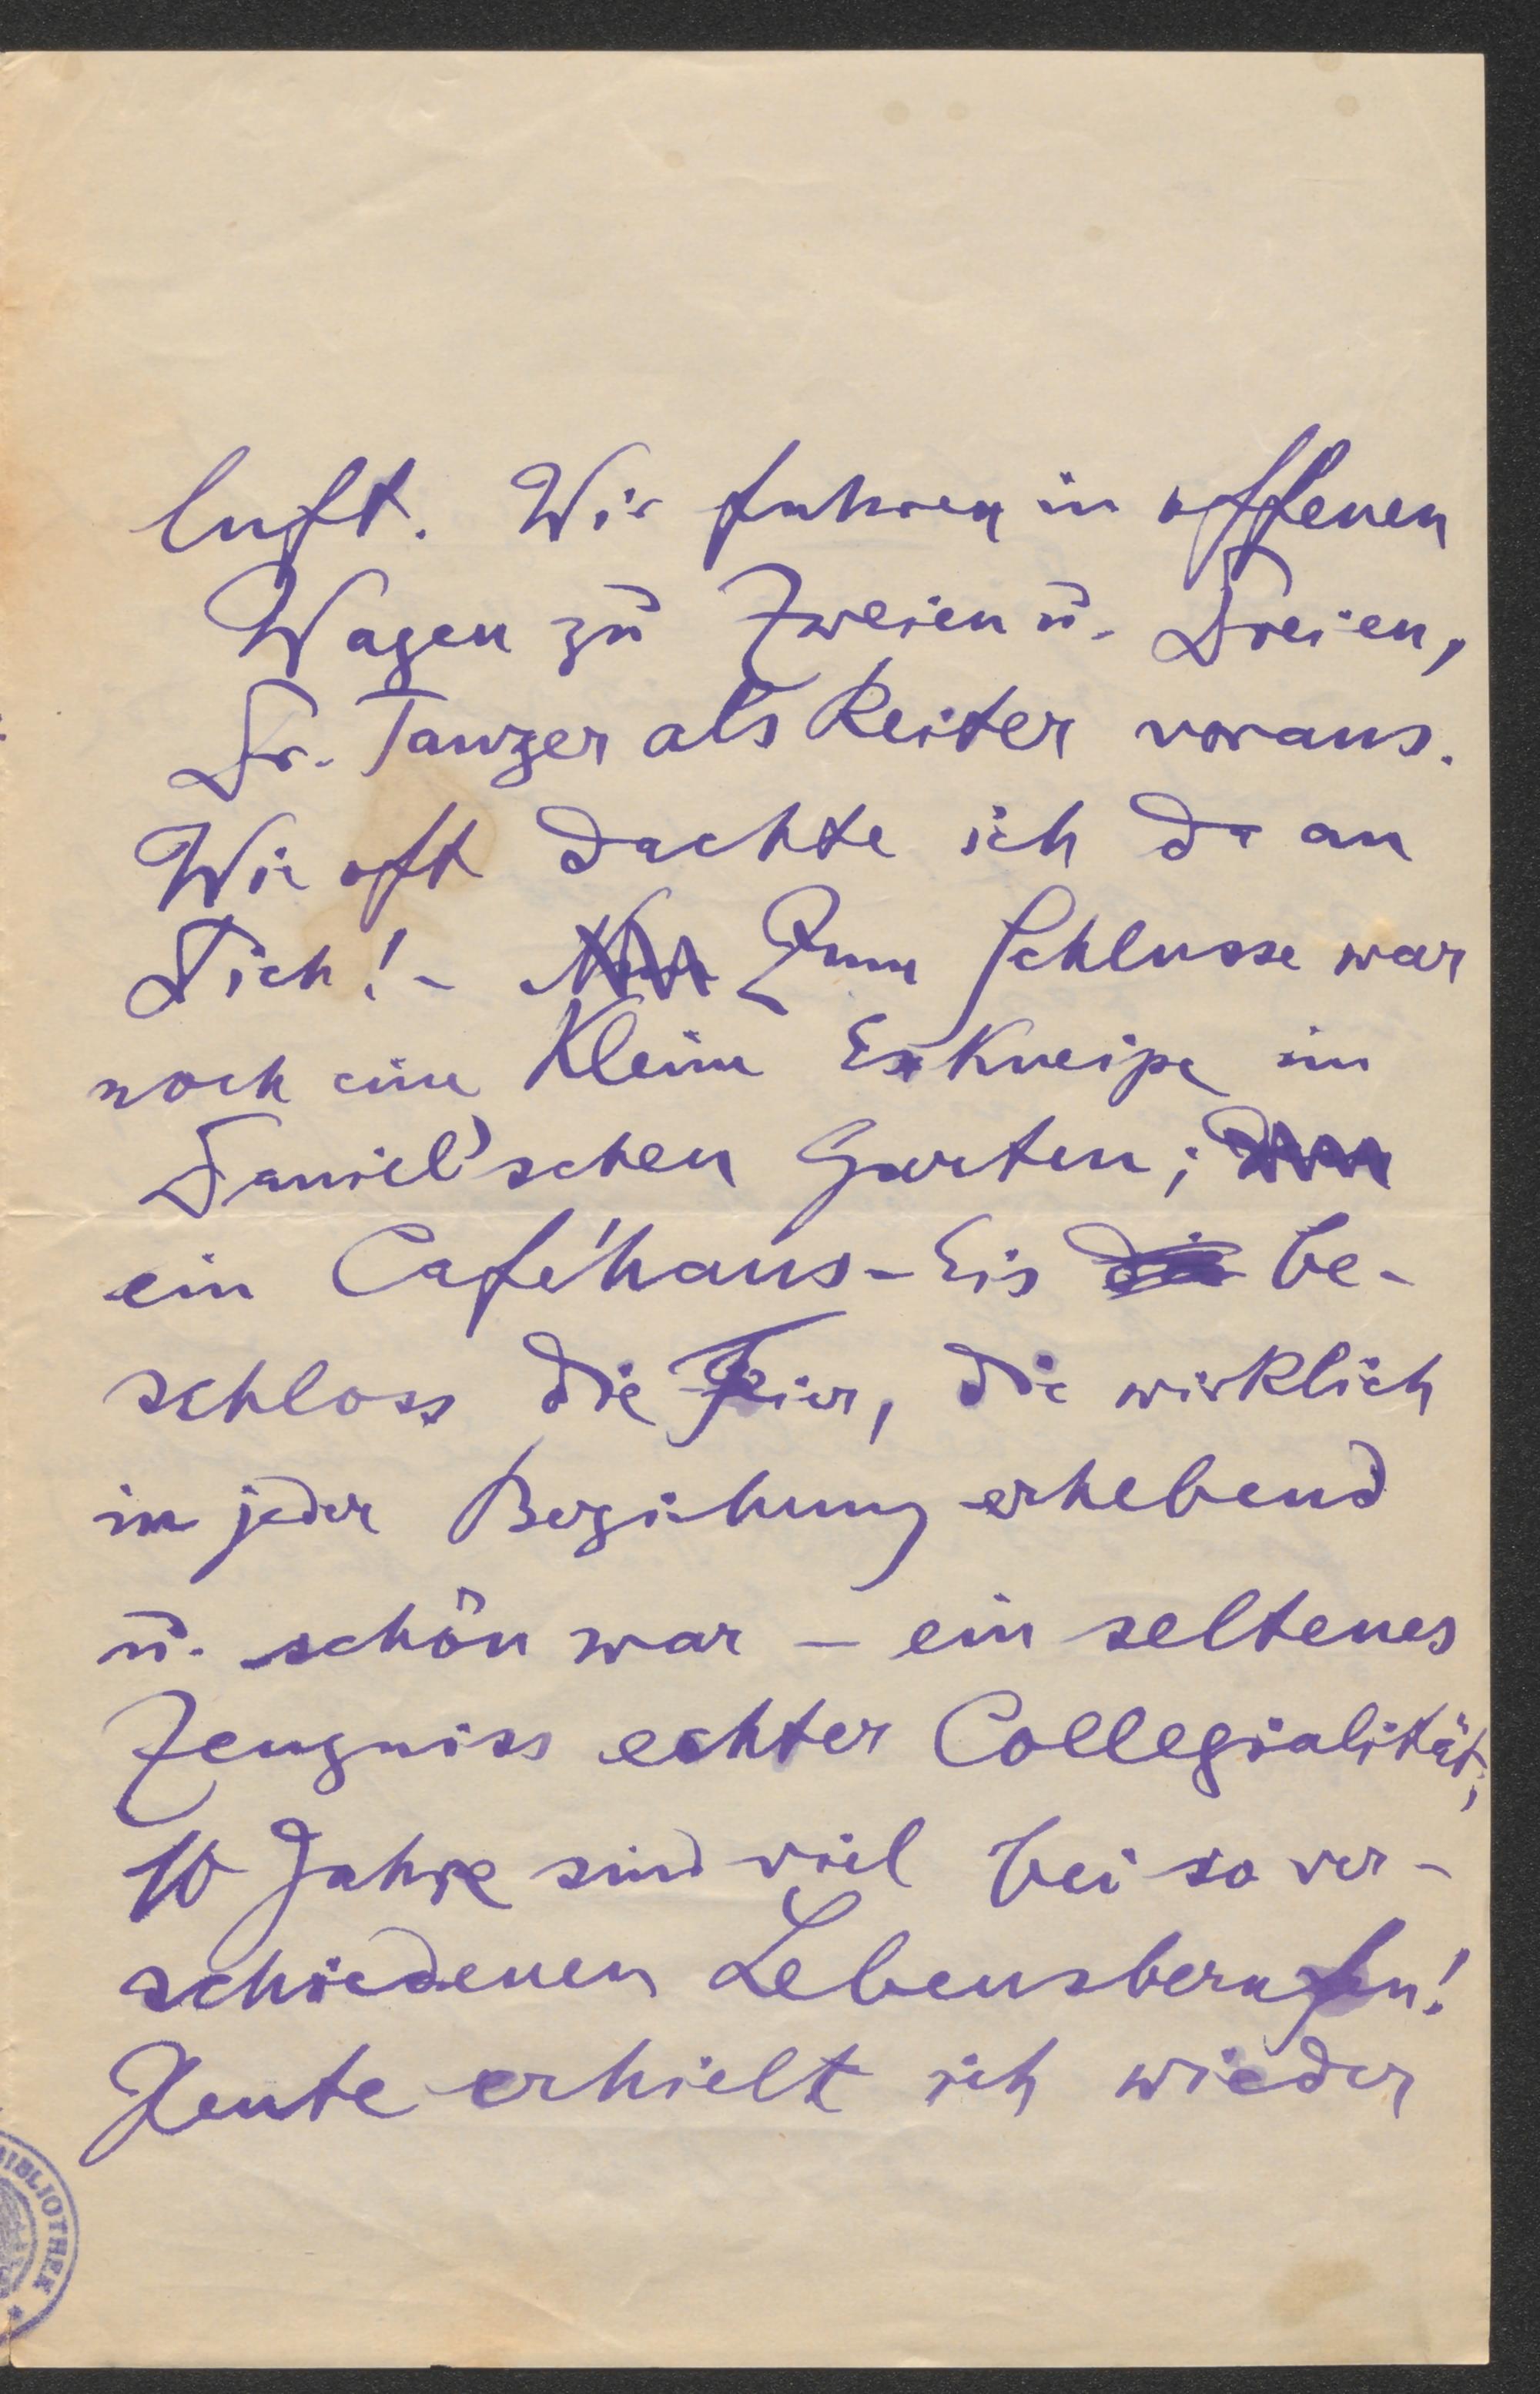 luft. Wir fuhren in offenen
Wagen zu Zweien u. Dreien,
Dr. Tanzer als Reiter voraus.
Wie oft dachte ich da an
Dich! - Zum Schlusse war
noch eine kleine Exkneipe im
Daniel'schen Garten;
ein Caféhaus-Eis be-
schloss die Feier, die wirklich
in jeder Beziehung erhebend
u. schön war – ein seltenes
Zeugniss echter Collegialität;
10 Jahre sind viel bei so ver-
schiedenen Lebensberufen!
Heute erhielt ich wieder
BIBLIOTHEK